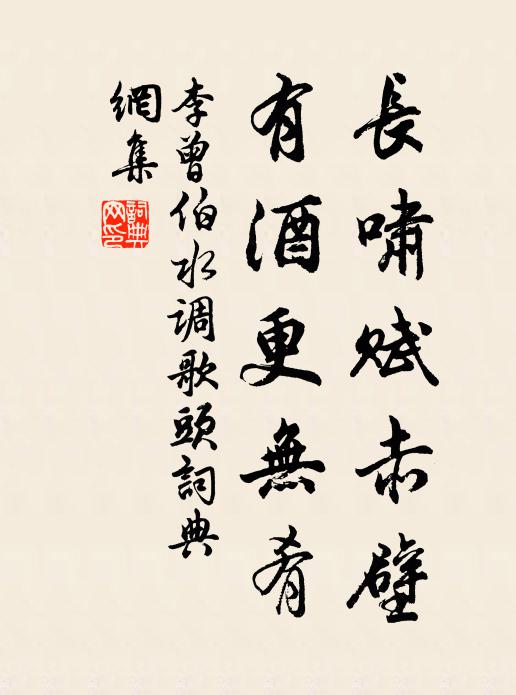 長嘯賦赤壁
有酒更無肴
李曾伯水調歌頭詞典
網集
詞典
网印